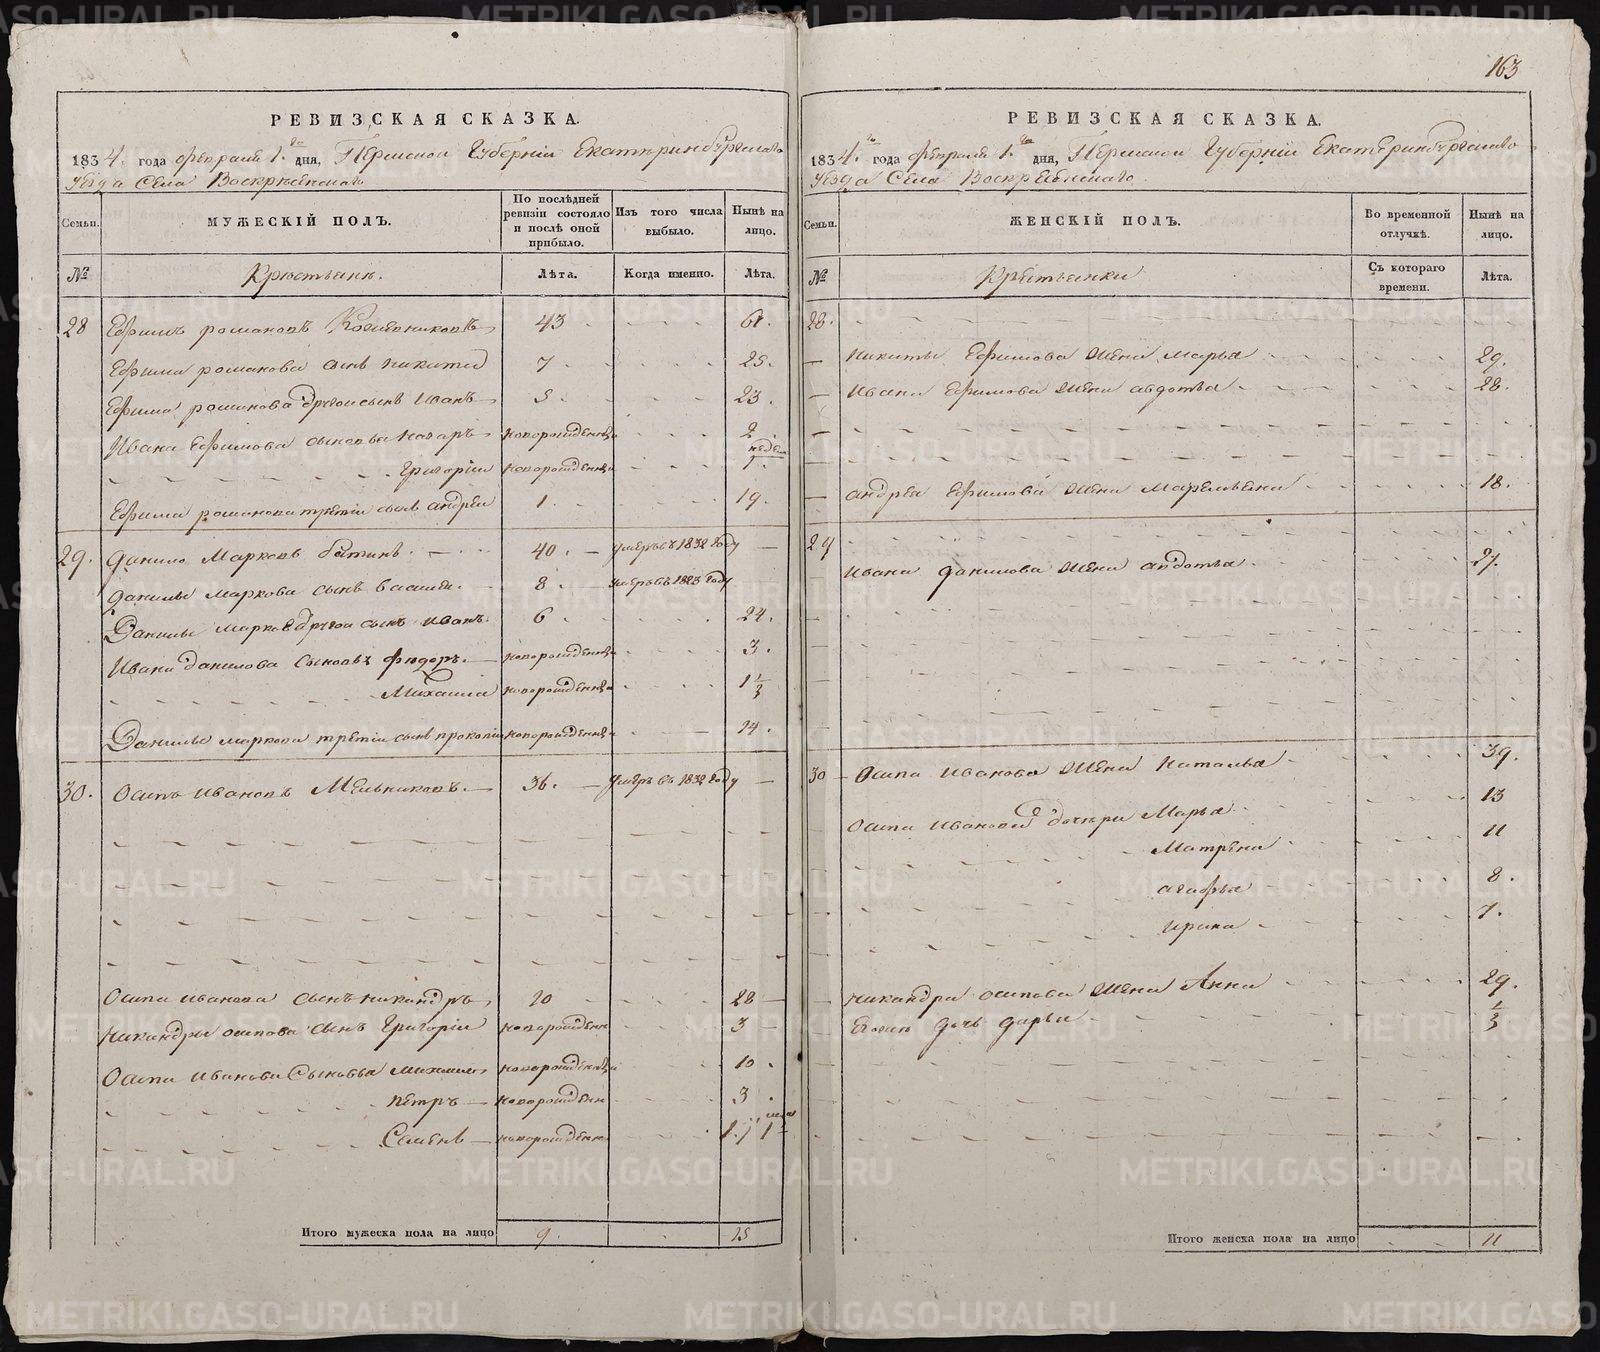 163
РЕВИЗСКАЯ СКАЗКА.
1834. года февраля 1.го дня, Пермской Губернiи Екатеринбургскаго
уезда Села Воскресенскаго
Семьи.
МУЖЕСКIЙ ПОЛЪ.
По послѣдней ревизiи состояло и послѣ оной прибыло.
Изъ того числа выбыло.
Нынѣ на лицо.
№
Крестьяне.
Лѣта.
Когда именно.
Лѣта.
28 Ефимъ романовъ 43 61.
Ефима романова сынъ никита 7 25.
Ефима романова другой сынъ Иванъ 5 23.
Ивана Ефимова сыновья назаръ новорожденны 2
недели
Григорiй новорожденны 1.
Ефима романова третiй сынъ андрей 1. 19.
29. данило Марковъ 40. умеръ въ 1832 году
данилы Маркова сынъ василей. 8 умеръ въ 1823 году
Данилы маркова другой сынъ иванъ. 6 24.
Ивана данилова сыновья фидоръ. новорожденны 3.
Михаила новорожденны 1 1/3
Данилы маркова третiй сынъ прокопiй новорожденны 14.
30. Осипъ ивановъ Мельниковъ. 36. умеръ въ 1832 году
Осипа иванова сынъ никандръ 10 28
никандры осипова сынъ Григорiй новорожденн 3
Осипа иванова Сыновья михаило новорожденны 10.
петръ новорожденн 3.
Семенъ новорожденн
Итого мужеска пола на лицо 9. 15
РЕВИЗСКАЯ СКАЗКА.
1834. года февраля 1.го дня, Пермской Губернiи Екатеринбургскаго
уезда Села Воскресенскаго.
Семьи.
ЖЕНСКIЙ ПОЛЪ.
Во временной отлучкѣ.
Нынѣ на лицо.
№
Крестьянки
Съ котораго времени.
Лѣта.
28.
никиты Ефимова жена марья 29.
ивана Ефимова жена авдотья 28.
андрея Ефимова жена Маремьяна 18.
29
ивана данилова жена авдотья 27.
30 Осипа иванова жена наталья 39.
Осипа иванова дочери Марья 13
Матрена 11
агафья 8.
ирина 7.
никандра осипова жена Анна 29.
Егоже дочь дарья 1/3
Итого женска пола на лицо 11